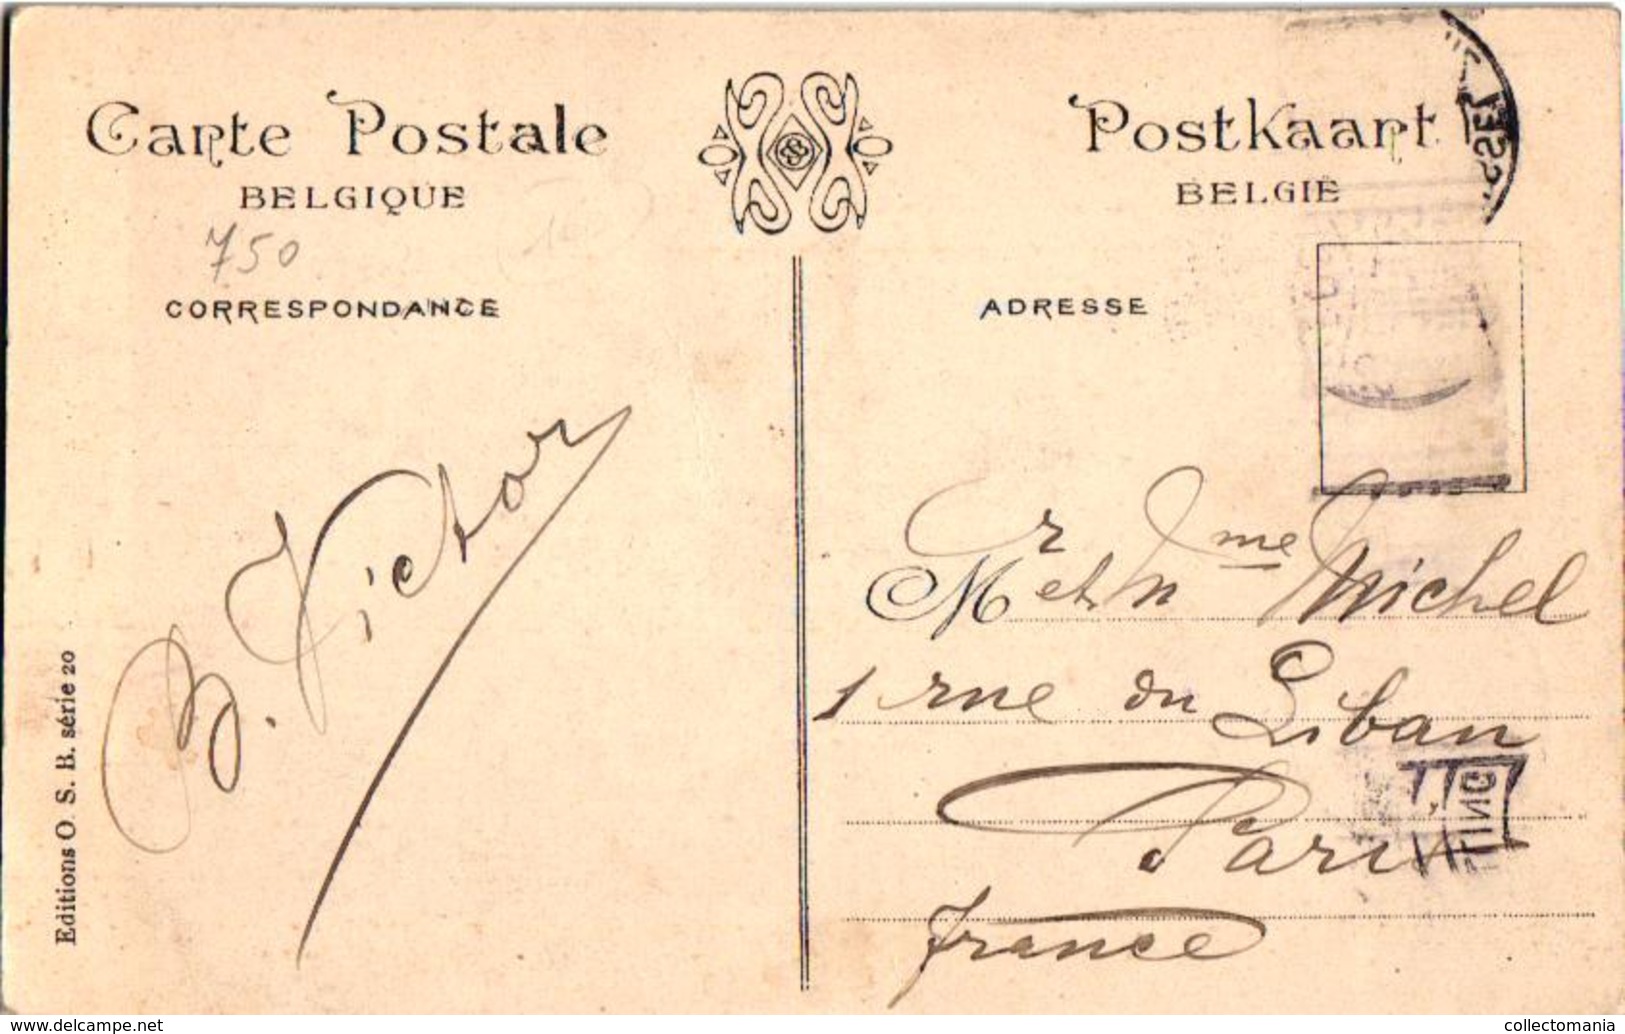 Carte Postale
BELGIQUE
750
CORRESPONDANCE
B. Victor
Editions O. S. B. série 20
Postkaart
BELGIË
ADRESSE
Mr et Mme Michel
1 rue du Liban
Paris
France
SSEL
TING
www.delcampe.net
collectomania